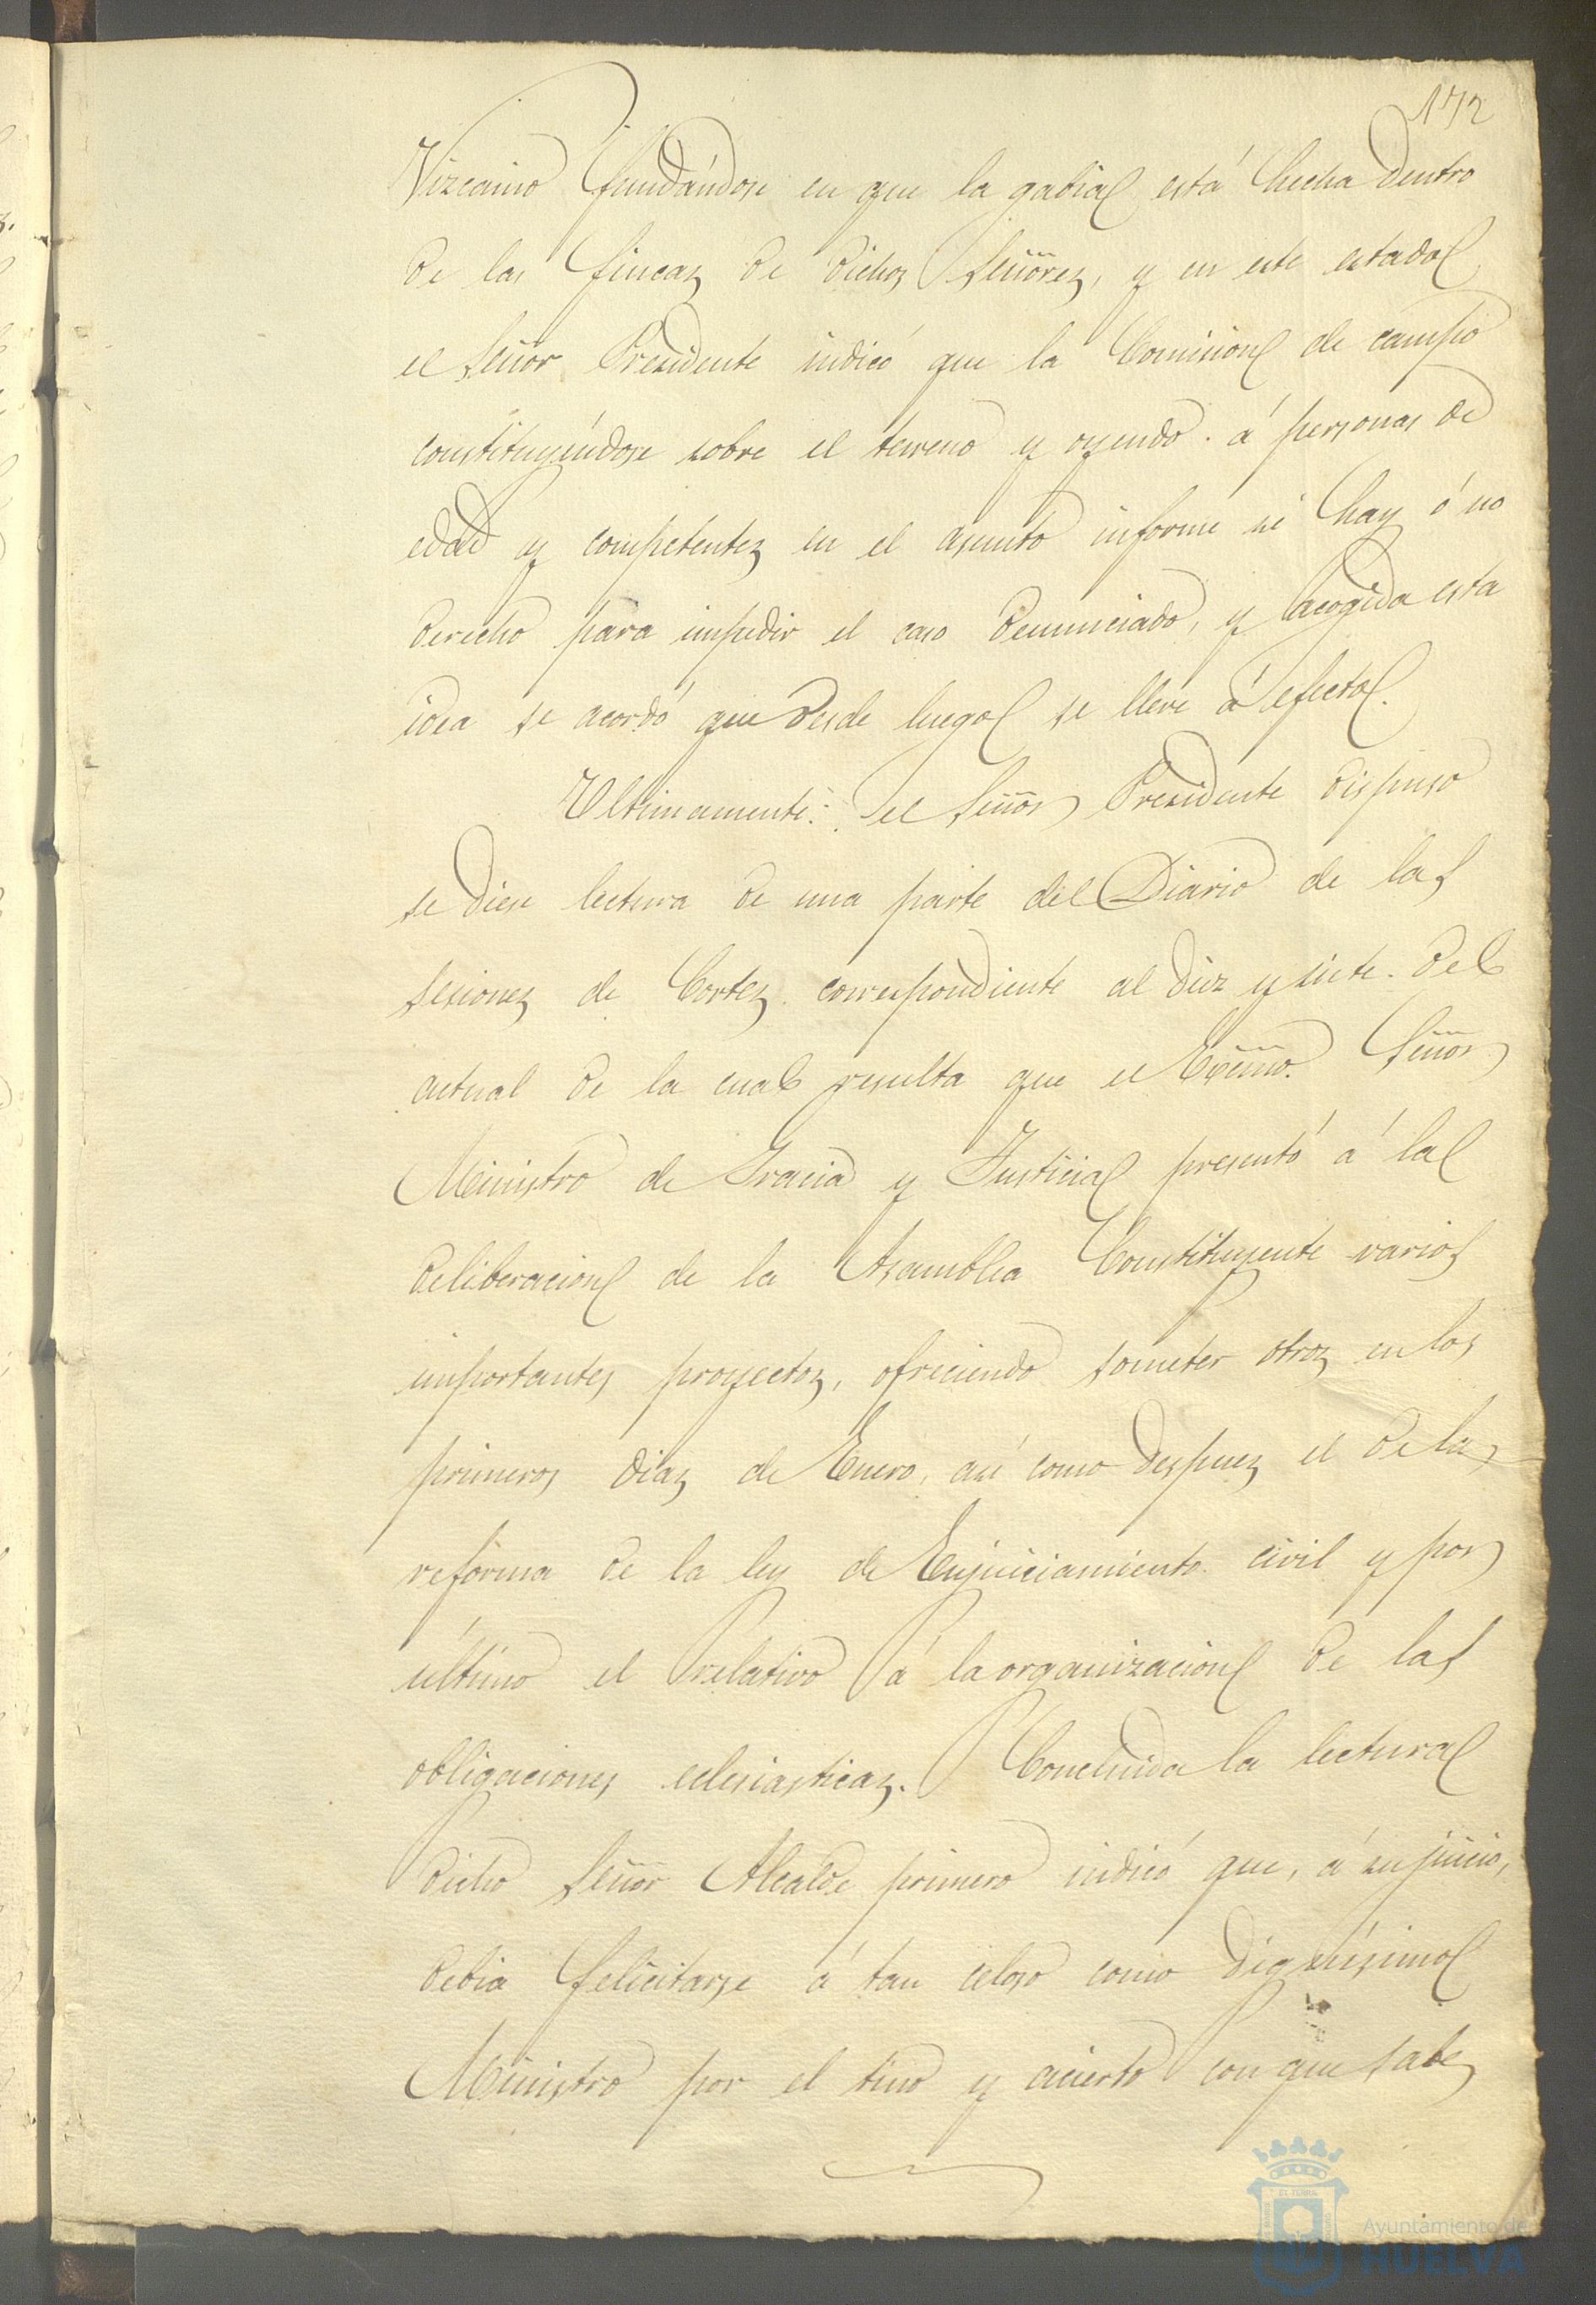 172
Vizcaino fundándose en que la gabia está hecha dentro
de las fincas de dichos Señores, y en este estado
el Señor Presidente indicó que la Comision de campo
constituyéndose sobre el terreno y oyendo á personas de
edad y competentes en el asunto informe si hay ó no
derecho para impedir el caso denunciado, y acogida esta
idea se acordó que desde luego se lleve á efecto.
Ultimamente: el Señor Presidente dispuso
se diese lectura de una parte del Diario de las
sesiones de Cortes correspondiente al diez y siete del
actual de la cual resulta que el Excmo. Señor
Ministro de Gracia y Justicia presentó á la
deliberacion de la Asamblea Constituyente varios
importantes proyectos, ofreciendo someter otros en los
primeros dias de Enero, asi como despues el de la
reforma de la ley de Enjuiciamiento civil y por
último el relativo á la organizacion de las
obligaciones eclesiasticas. Concluida la lectura
dicho Señor Alcalde primero indicó que, á su juicio,
debia felicitarse á tan celoso como dignísimo
Ministro por el tino y acierto con que sabe
Ayuntamiento de
HUELVA